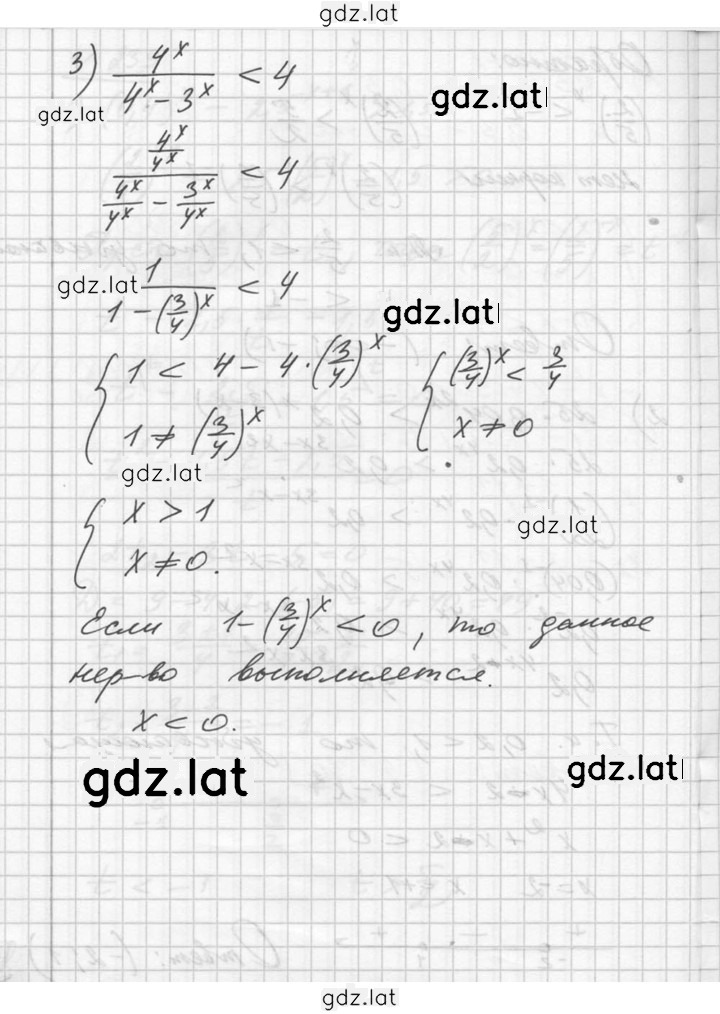 gdz.lat
3) 4^x / (4^x - 3^x) < 4
gdz.lat
gdz.lat
(4^x/4^x) / (4^x/4^x - 3^x/4^x) < 4
gdz.lat
1 / (1 - (3/4)^x) < 4
gdz.lat
{ 1 < 4 - 4 · (3/4)^x { (3/4)^x < 3/4
1 ≠ (3/4)^x x ≠ 0
gdz.lat
{ x > 1
gdz.lat
x ≠ 0.
Если 1 - (3/4)^x < 0, то данное
нер-во выполняется.
x < 0.
gdz.lat
gdz.lat
gdz.lat